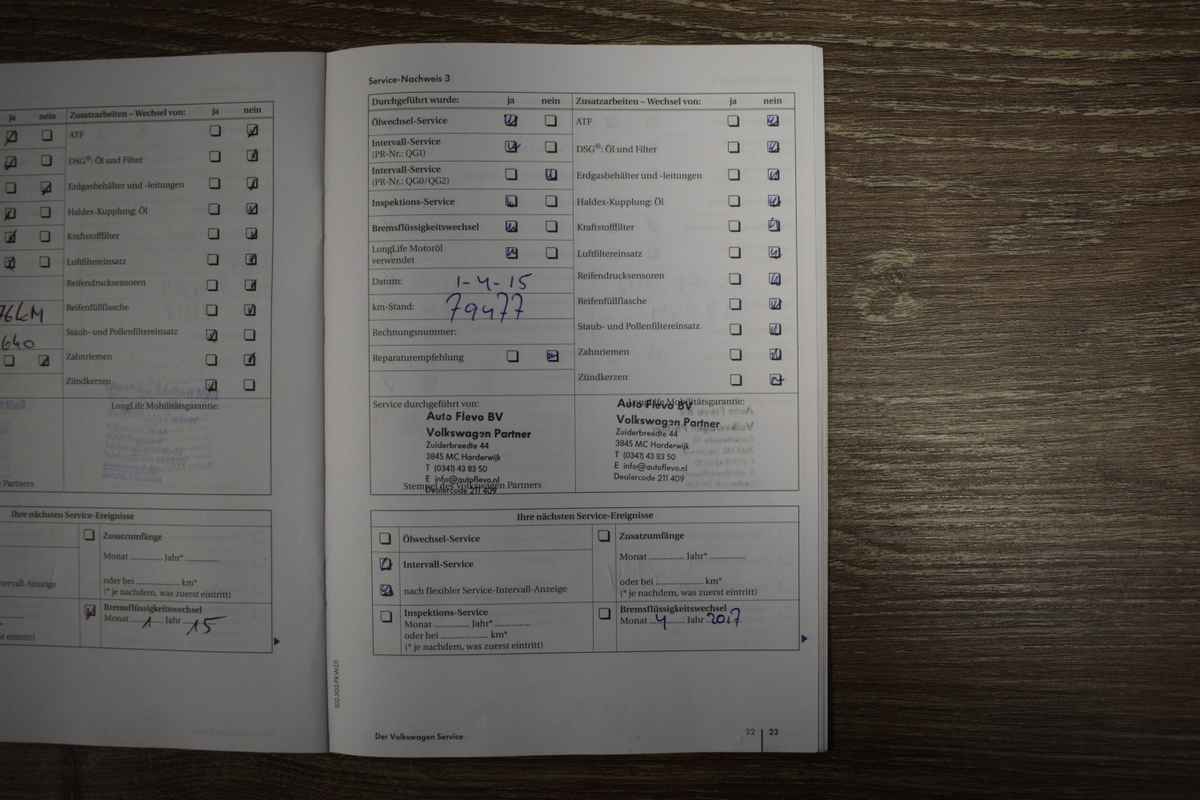 ja nein Zusatzarbeiten – Wechsel von: ja nein
ATF
DSG®: Öl und Filter
Erdgasbehälter und -leitungen
Haldex-Kupplung: Öl
Kraftstofffilter
Luftfiltereinsatz
Reifendrucksensoren
Reifenfüllflasche
76 KM
Staub- und Pollenfiltereinsatz
640
Zahnriemen
Zündkerzen
LongLife Mobilitätsgarantie:
Partners
Ihre nächsten Service-Ereignisse
Zusatzumfänge
Monat Jahr*
oder bei km*
(* je nachdem, was zuerst eintritt)
Bremsflüssigkeitswechsel
Monat 1 Jahr 15
Service-Nachweis 3
Durchgeführt wurde: ja nein
Ölwechsel-Service
Intervall-Service
(PR-Nr.: QG1)
Intervall-Service
(PR-Nr.: QG0/QG2)
Inspektions-Service
Bremsflüssigkeitswechsel
LongLife Motoröl
verwendet
Datum: 1-4-15
km-Stand: 79477
Rechnungsnummer:
Reparaturempfehlung
Zusatzarbeiten – Wechsel von: ja nein
ATF
DSG®: Öl und Filter
Erdgasbehälter und -leitungen
Haldex-Kupplung: Öl
Kraftstofffilter
Luftfiltereinsatz
Reifendrucksensoren
Reifenfüllflasche
Staub- und Pollenfiltereinsatz
Zahnriemen
Zündkerzen
Service durchgeführt von:
Auto Flevo BV
Volkswagen Partner
Zuiderbreedte 44
3845 MC Harderwijk
T (0341) 43 83 50
E info@autoflevo.nl
Stempel des Volkswagen Partners
Dealercode 211 409
LongLife Mobilitätsgarantie:
Auto Flevo BV
Volkswagen Partner
Zuiderbreedte 44
3845 MC Harderwijk
T (0341) 43 83 50
E info@autoflevo.nl
Dealercode 211 409
Ihre nächsten Service-Ereignisse
Ölwechsel-Service
Intervall-Service
nach flexibler Service-Intervall-Anzeige
Inspektions-Service
Monat Jahr*
oder bei km*
(* je nachdem, was zuerst eintritt)
Zusatzumfänge
Monat Jahr*
oder bei km*
(* je nachdem, was zuerst eintritt)
Bremsflüssigkeitswechsel
Monat 4 Jahr 2017
Der Volkswagen Service
22 23